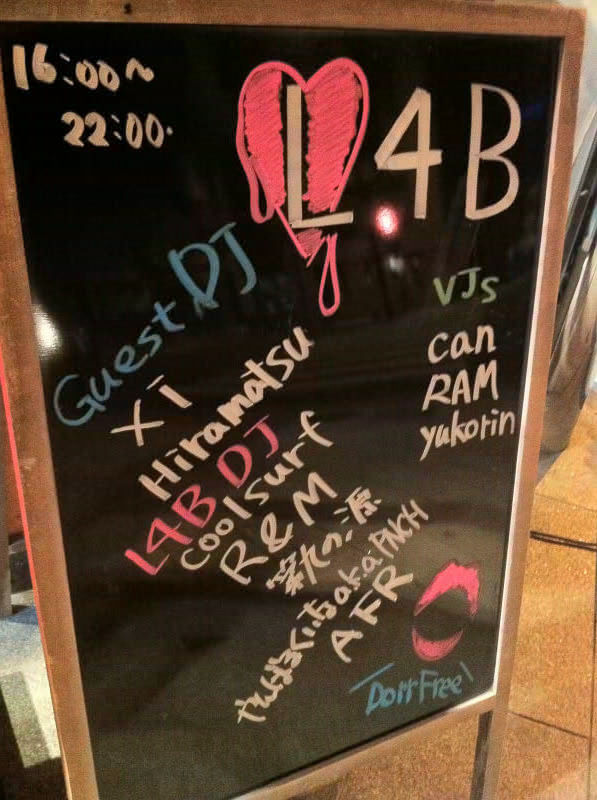 16:00~
22:00.
L4B
Guest DJ
xi
Hiramatsu
L4B DJ
coolsurf
R&M
a.k.a PNCH
AFR
VJs
can
RAM
yukorin
Door Free